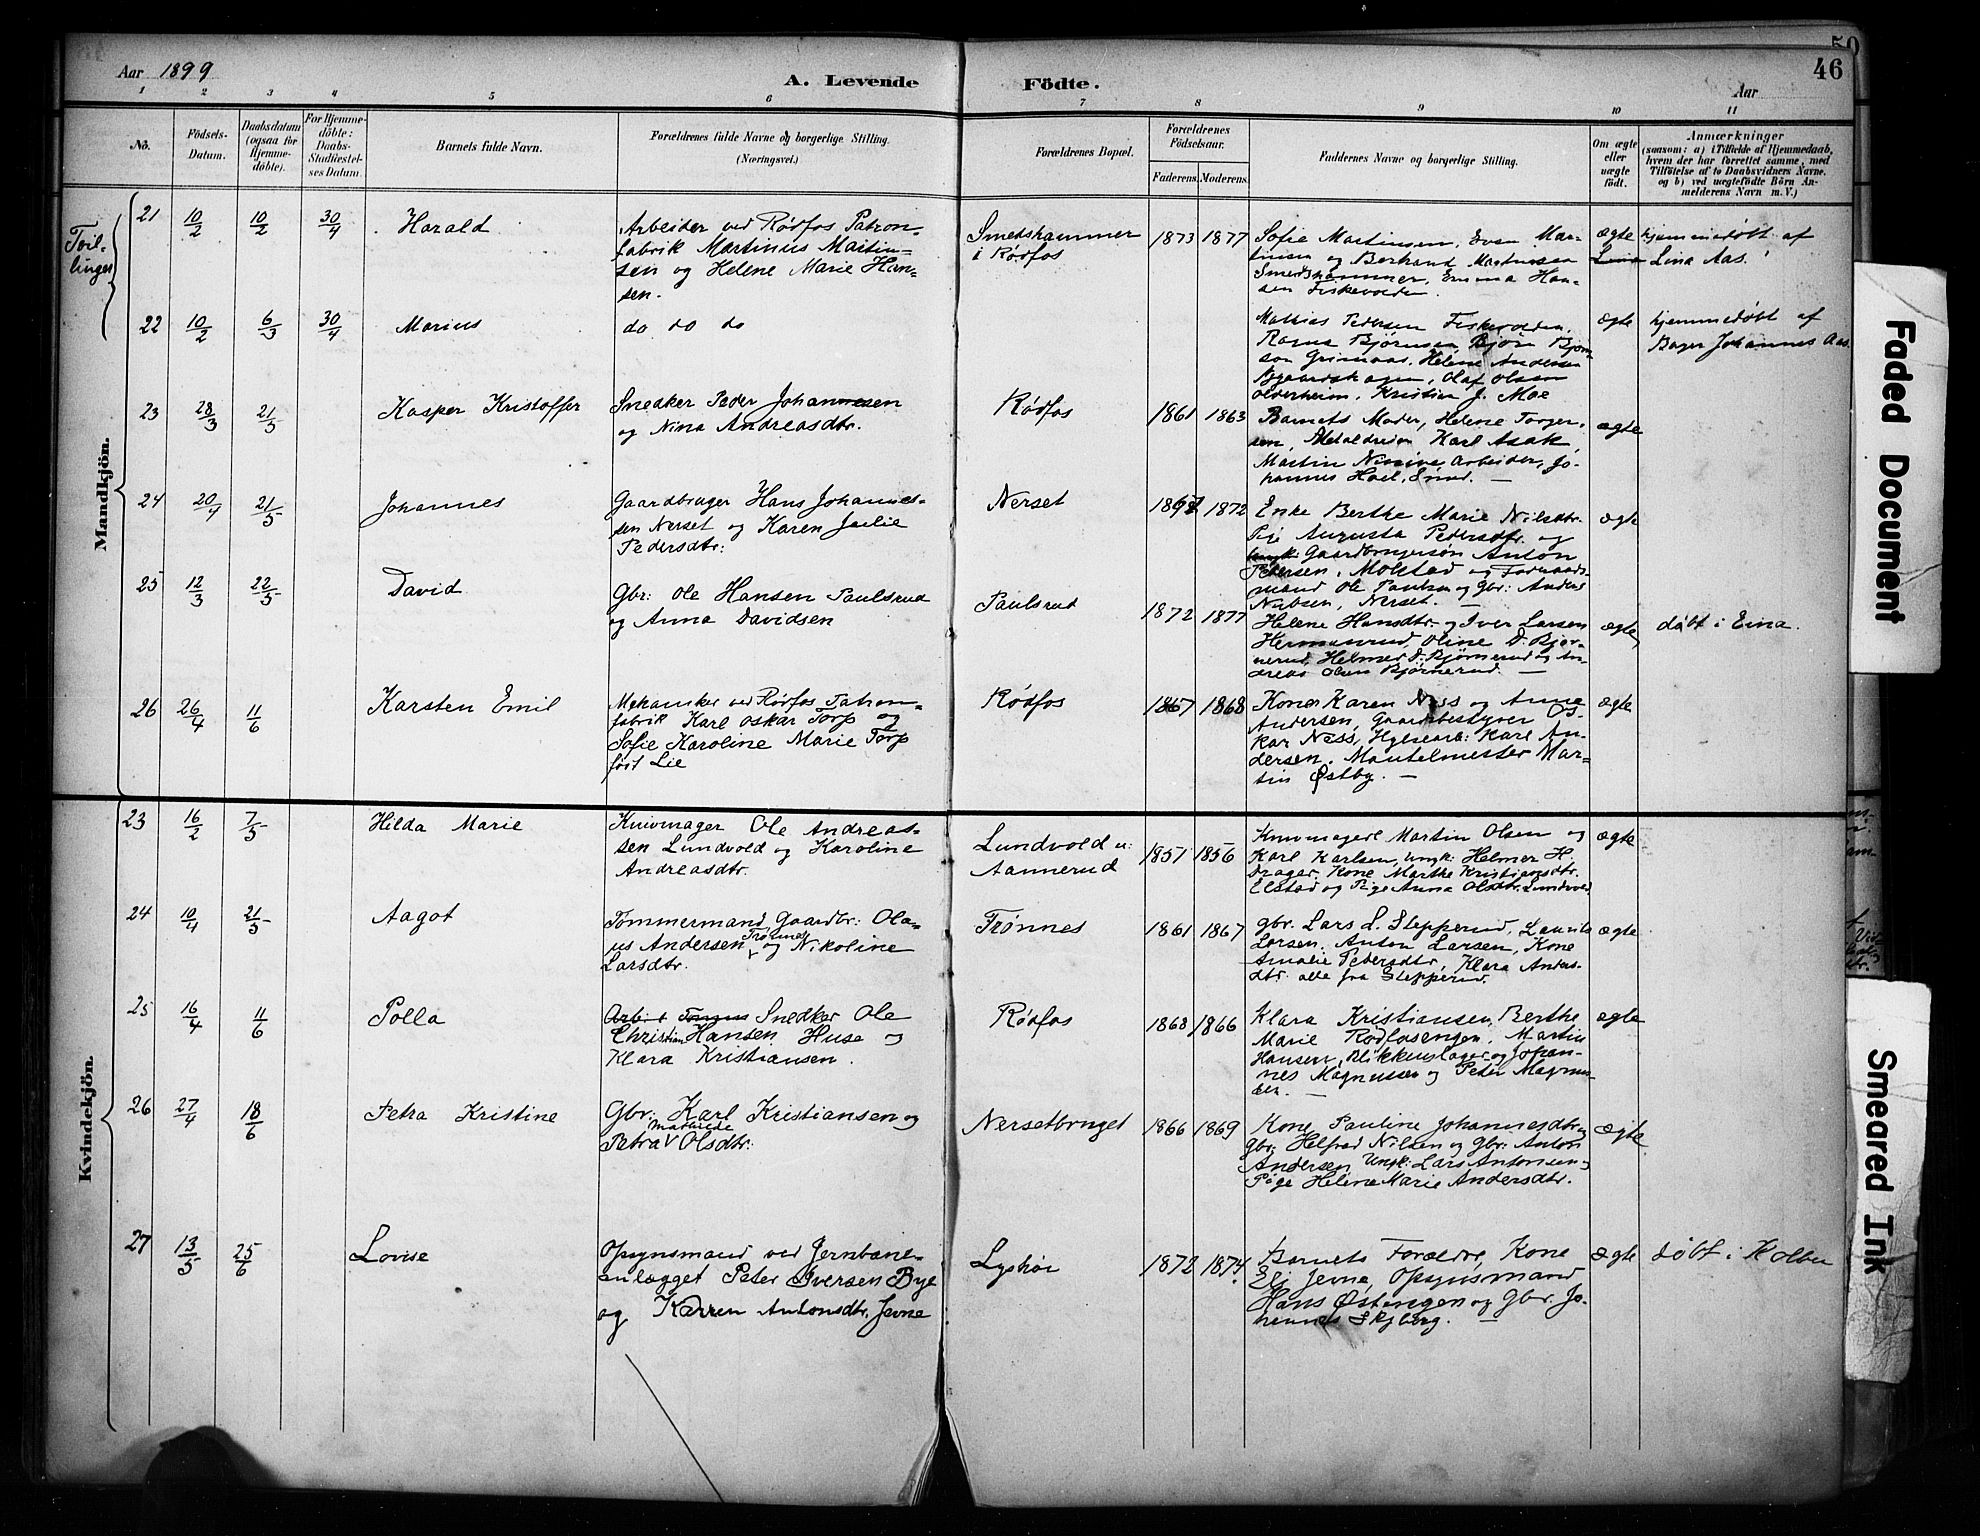 Aar 1899
A. Levende Födte.
Aar
50
46
1 2 3 4 5 6 7 8 9 10 11
No.
Födsels-
Datum.
Daabsdatum
(ogsaa for
Hjemme-
döbte).
For Hjemme-
döbte:
Daabs-
Stadfæstel-
ses Datum.
Barnets fulde Navn.
Forældrenes fulde Navne og borgerlige Stilling.
(Næringsvei.)
Forældrenes Bopæl.
Forældrenes
Födselsaar.
Faderens Moderens
Faddernes Navne og borgerlige Stilling.
Om ægte
eller
uægte
födt.
Anmærkninger
(saasom: a) i Tilfælde af Hjemmedaab,
hvem der har forrettet samme, med
Tilföielse af to Daabsvidners Navne.
og b) ved uægtefödte Börn An-
melderens Navn m. V.)
Mandkjön.
Tvil-
linger
21 10/2 10/2 30/4 Harald
Arbeider ved Rødfos Patron-
fabrik Martinus Martin-
sen og Helene Marie Han-
sen.
Smedshammer
i Rødfos
1873 1877
Sofie Martinsen, Even Mar-
tinsen og Berhand Magnusen
Smedshammer, Emma Han-
sen Fiskevolden.
ægte
hjemmedøbt af
Lina Aas.
22 10/2 6/3 30/4 Marius
do do do
Mathias Pedersen Fiskevolden,
Ragna Bjørnsen, Bjørn Bjørn-
son Grimaas, Helene Andersen
Nygaardshagen, Olaf Olsen
Olderheim, Kristian J. Moe
ægte
hjemmedøbt af
Bager Johannes Aas.
23 28/3 21/5 Kasper Kristoffer
Sneaker Peder Johannesen
og Nina Andreasdtr.
Rødfos
1861 1863
Barnets Moder, Helene Torger-
sen, Metaldreier Karl Asak
Martin Ninive, Arbeider, Jo-
hannes Hoel, Smed. —
ægte
24 20/4 21/5 Johannes
Gaardbruger Hans Johannes-
sen Nerset og Karen Julie
Pedersdtr:
Nerset
1872
Enke Berthe Marie Nilsdtr.
Pige Augusta Pedersdtr. og
Gaardbrugersøn Anton
Pedersen, Molstad og Forraads-
mand Ole Paulsen og Gbr: Anders
Nielsen, Nerset. —
ægte
25 12/3 22/5 David
Gbr: Ole Hansen Paulsrud
og Anna Davidsen
Paulsrud
1872 1877
Helene Hansdtr. og Iver Larsen
Hermanrud, Oline D. Bjør-
nerud, Helmer D. Bjørnerud og An-
dreas Olsen Bjørnerud. —
ægte
døbt i Eina.
26 26/4 11/6 Karsten Emil
Mekaniker ved Rødfos Patron-
fabrik Karl Oskar Torp og
Sofie Karoline Marie Torp
født Lie
Rødfos
1867 1868
Koner Karen Næss og Anne
Andersen, Gaardbestyrer Os-
kar Næss, Hylsearb: Karl An-
dersen. Mantelmester Mar-
tin Østby. —
ægte
Kvindekjön.
23 16/2 7/5 Hilda Marie
Knivmager Ole Andreas-
sen Lundvold og Karoline
Andreasdtr.
Lundvold u:
Aannerud
1851 1856
Knivmagere Martin Olsen og
Karl Karlsen, Ungk: Helmer H.
Drager, Kone Marthe Kristiansdtr.
Elstad og Pige Anna Olsdtr. Lundvold
ægte
24 10/4 21/5 Aagot
Tømmermand, Gaardbr: Ola-
us Andersen Trønnes og Nikoline
Larsdtr.
Trønnes
1861 1867
gbr. Lars L. Slepperud, Laurits
Larsen, Anton Larsen, Kone
Amalie Pedersdtr, Klara Anders-
dtr. alle fra Slepperud.
ægte
25 16/4 11/6 Polla
Snedker Ole
Christian Hansen Huse og
Klara Kristiansen.
Rødfos
1868 1866
Klara Kristiansen, Berthe
Marie Rødfosengen, Martin
Hansen, Blikkenslager og Johan-
nes Magnussen og Peter Magnus-
sen. —
ægte
26 27/4 18/6 Petra Kristine
Gbr: Karl Kristiansen og
Petra Mathilde Olsdtr:
Nersetbruget
1866 1869
Kone Pauline Johannesdtr og
Gbr: Helfred Nilsen og Gbr: Anton
Andersen, Ungk: Lars Antonsen og
Pige Helene Marie Andersdtr.
ægte
27 13/5 25/6 Lovise
Opsynsmand ved Jernbane-
anlægget Peter Iversen Bye
og Karen Antonsdtr. Jevne
Lyshøi
1872 1874
Barnets Forældre, Kone
Eli Jevne, Opsynsmand
Hans Østengen og Gbr. Jo-
hannes Skjberg. —
ægte
døbt i Kolbu
Faded Document
Smeared Ink